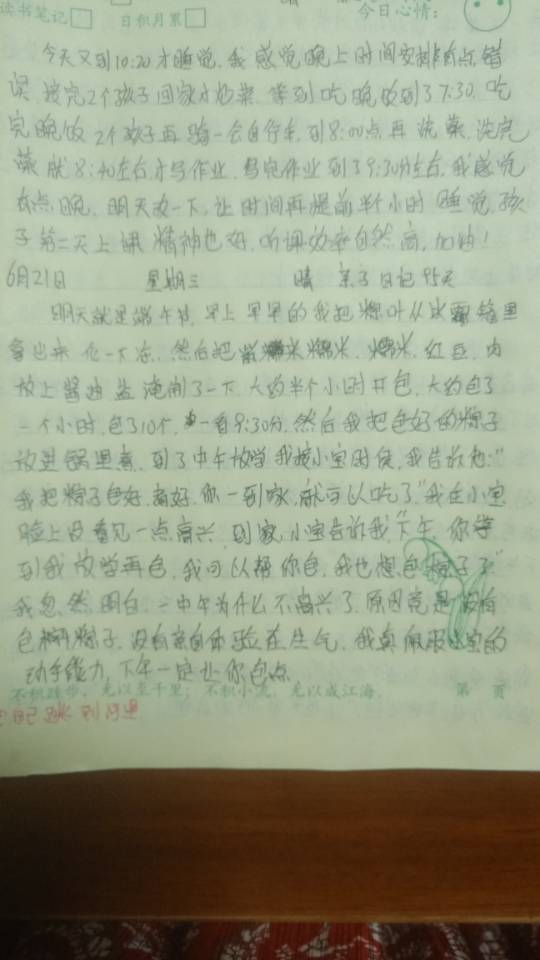 读书笔记 日积月累 今日心情:
今天又到10:20才睡觉,我感觉晚上时间安排有点错
误,接完2个孩子回家才炒菜,等到吃晚饭到了7:30,吃
完晚饭2个孩子再骑一会自行车,到8:00点再洗澡,洗完
澡就8:40左右才写作业,写完作业到了9:30分左右,我感觉
有点晚,明天改一下,让时间再提前半个小时睡觉,孩
子第二天上课精神也好,听课效率自然高,加油!
6月21日 星期三 晴 亲子日记 天
明天就是端午节,早上早早的我把粽叶从冰箱里
拿出来化一下冻,然后把 糯米,红豆,肉
放上酱油盐腌制了一下,大约半个小时开包,大约包了
一个小时,包了10个,一看9:30分,然后我把包好的粽子
放进锅里煮,到了中午放学我接小宝时候,我告诉他:“
我把粽子包好,煮好,你一到家,就可以吃了”我在小宝
脸上没看见一点高兴,到家,小宝告诉我“下午,你等
到我放学再包,我可以帮你包,我也想包粽子了”
我忽然明白,一中午为什么不高兴了,原因竟是没有
包粽子,没有亲自体验在生气,我真佩服小宝的
动手能力,下午一定让你包点
不积跬步,无以至千里;不积小流,无以成江海。 第 页
自己跳到河里